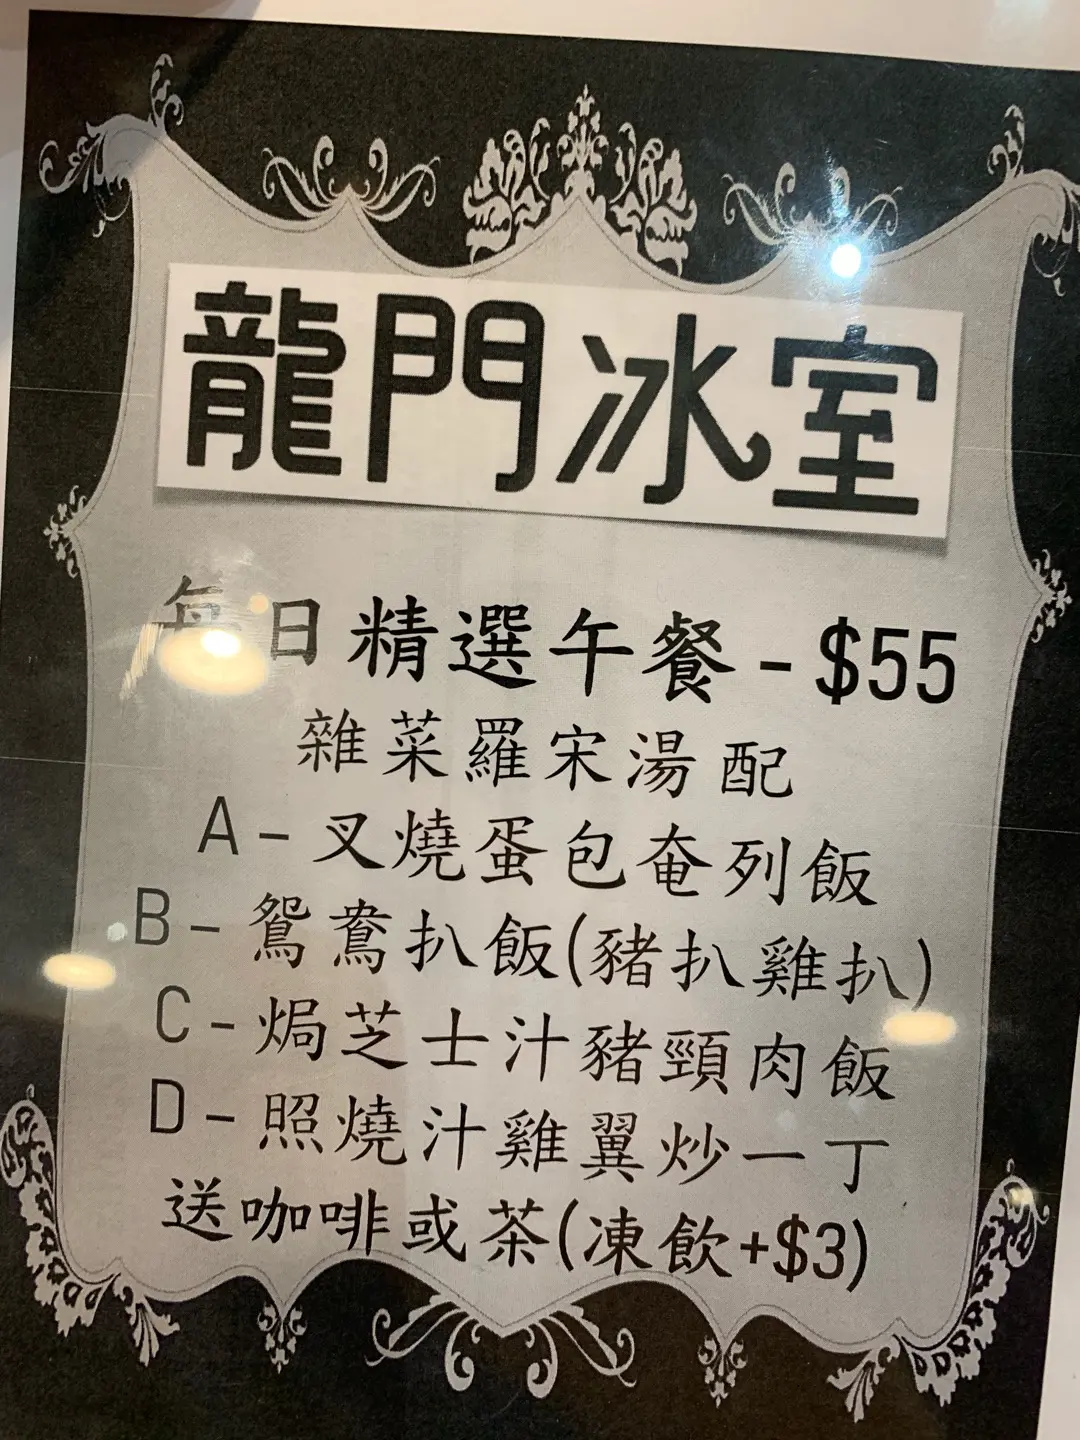 龍門冰室
每日精選午餐-$55
雜菜羅宋湯 配
A-叉燒蛋包奄列飯
B-鴛鴦扒飯(豬扒雞扒)
C-焗芝士汁豬頸肉飯
D-照燒汁雞翼炒一丁
送咖啡或茶(凍飲+$3)